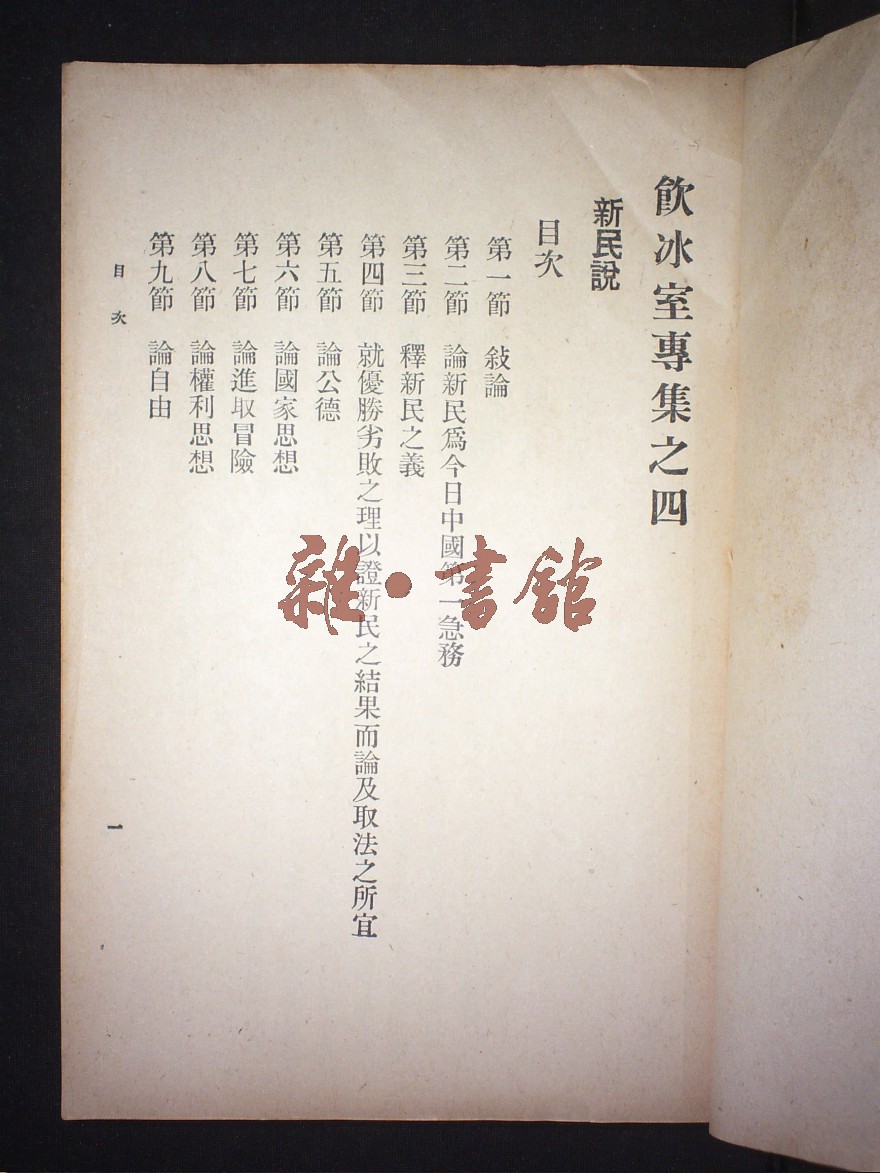 飲冰室專集之四
新民說
目次
第一節 敍論
第二節 論新民爲今日中國第一急務
第三節 釋新民之義
第四節 就優勝劣敗之理以證新民之結果而論及取法之所宜
第五節 論公德
第六節 論國家思想
第七節 論進取冒險
第八節 論權利思想
第九節 論自由
目次
一
雜·書館